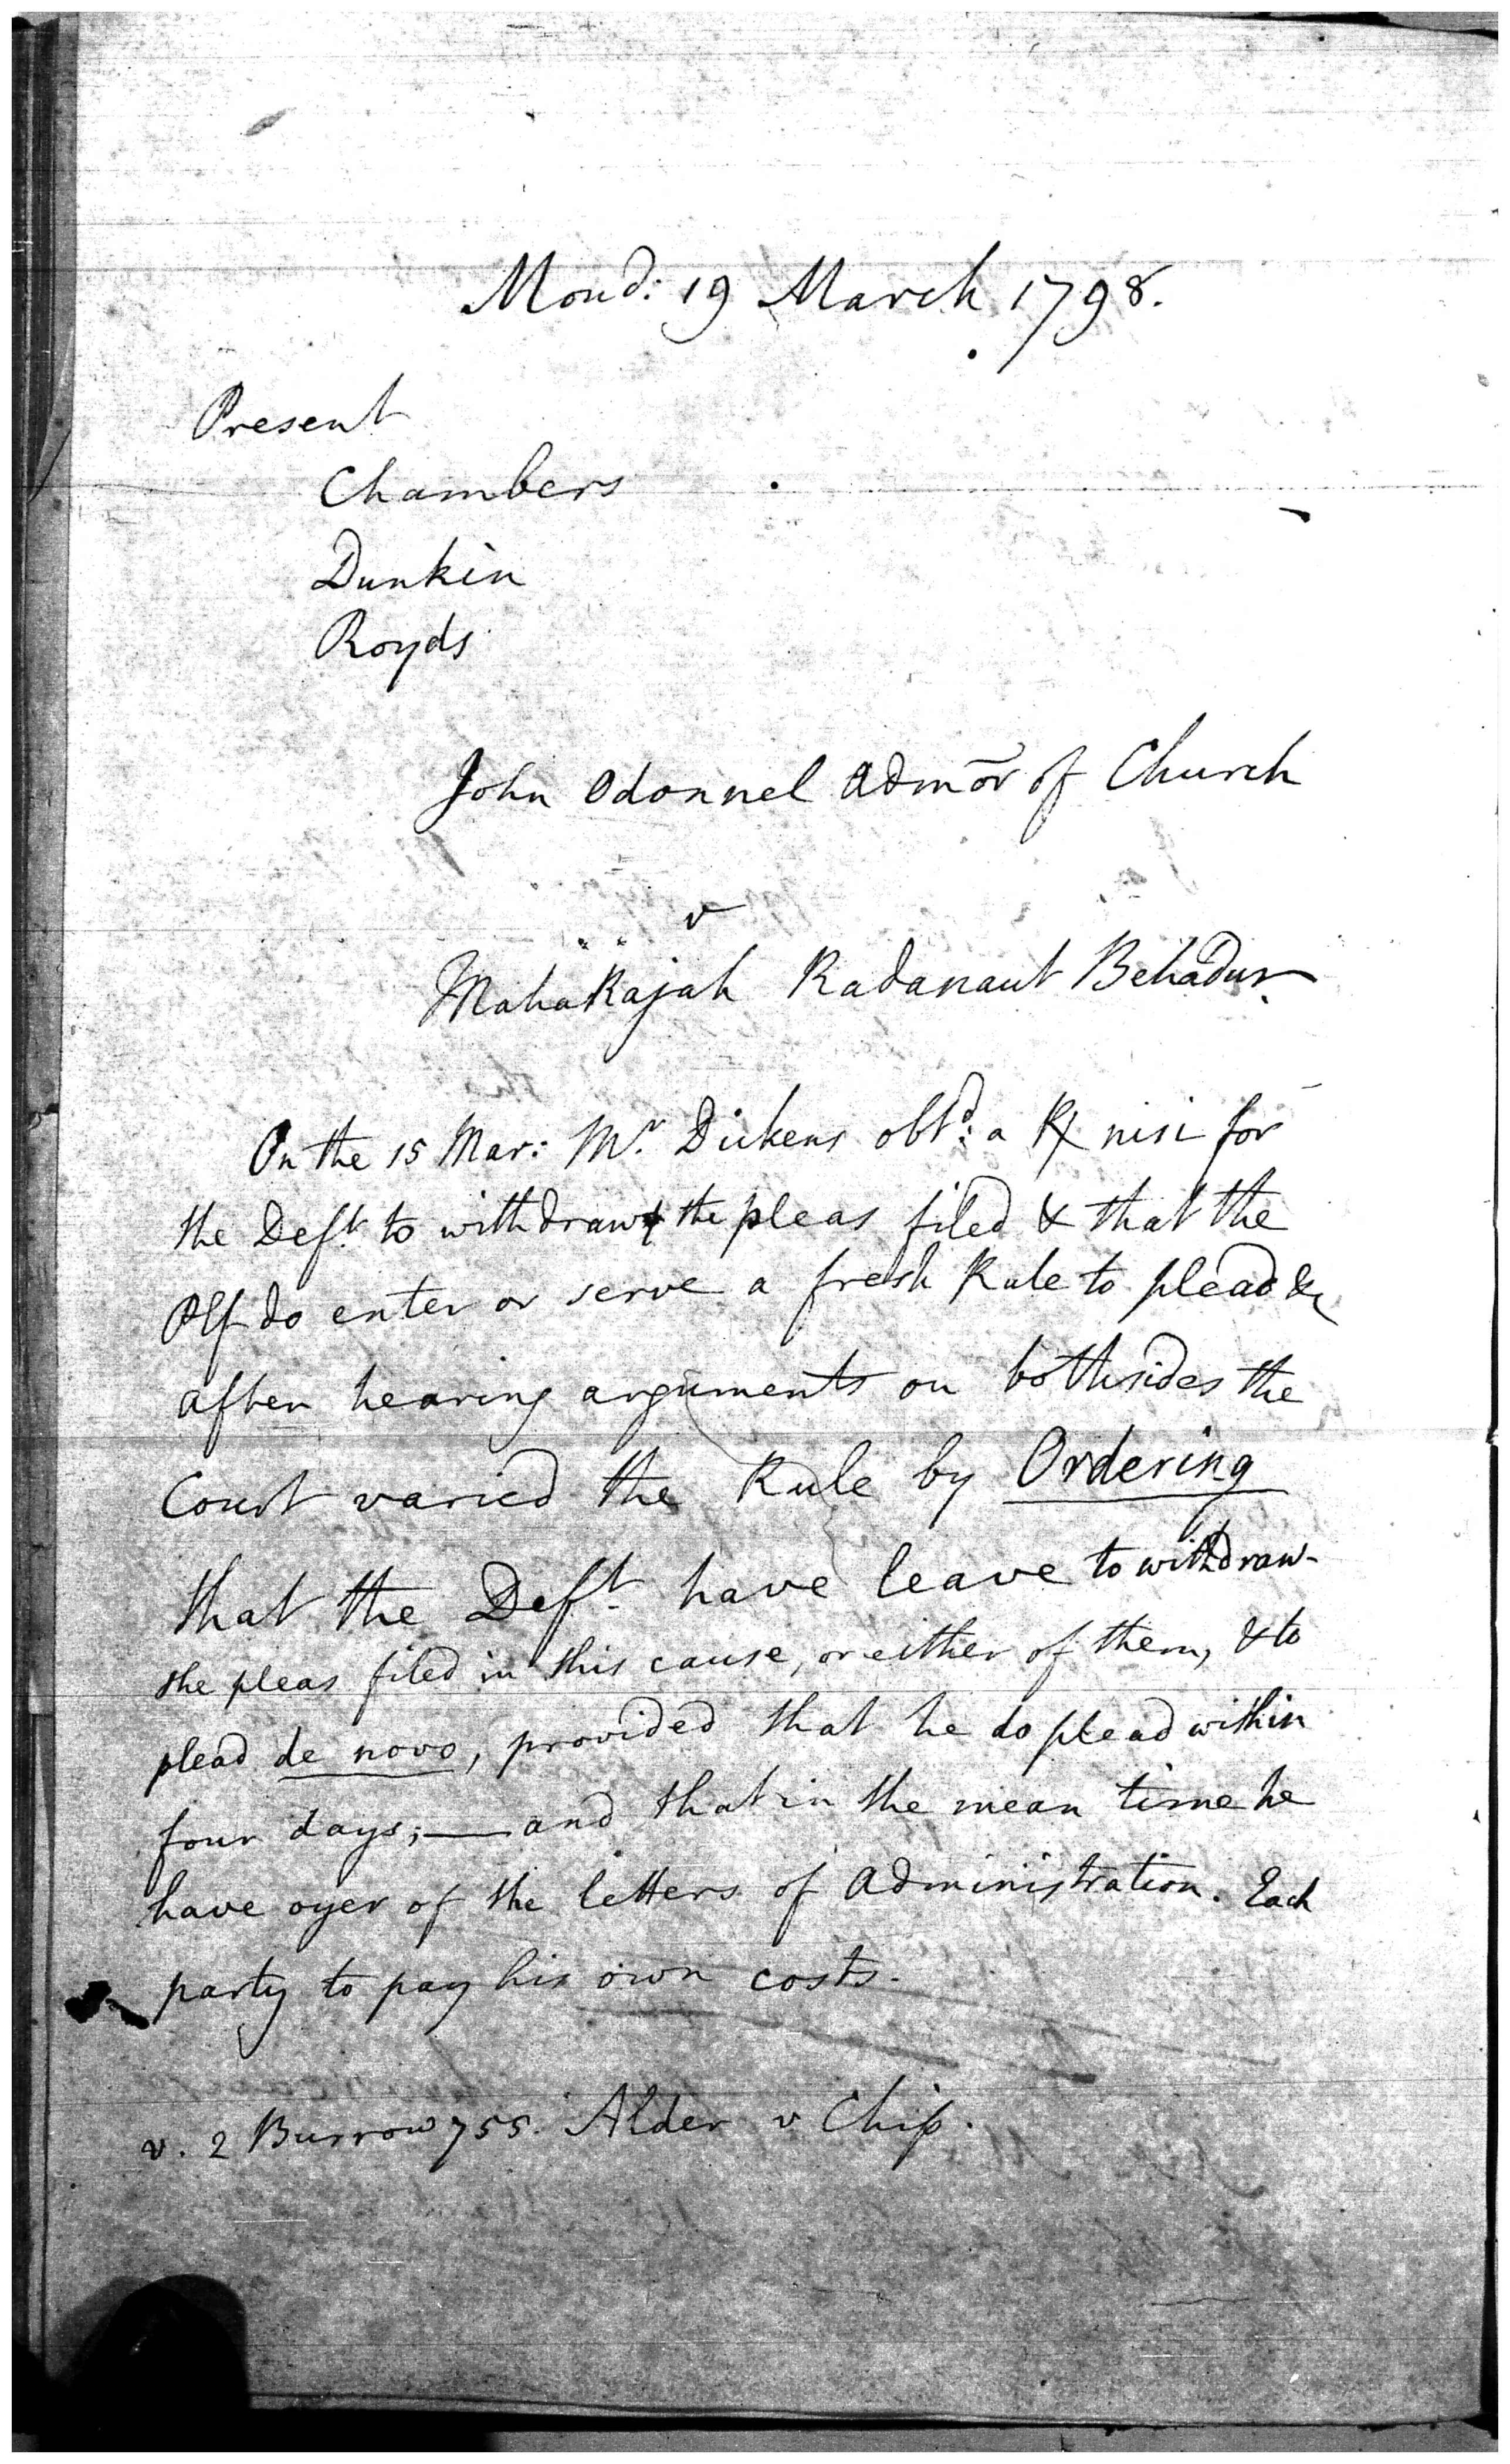 Mond: 19 March 1798.
Present
Chambers
Dunkin
Royds
John Odonnel admor of Church
v
MahaRajah Radanaut Behadur
On the 15 Mar: Mr. Dickens obtd: a R nisi for
the Deft. to withdraw the pleas filed & that the
Plf do enter or serve a fresh Rule to plead &
after hearing arguments on both sides the
Court varied the Rule by Ordering
that the Deft. have leave to withdraw
the pleas filed in this cause, or either of them, & to
plead de novo, provided that he do plead within
four days; — and that in the mean time he
have oyer of the letters of administration. Each
party to pay his own costs.
v. 2 Burrow 755. Alder v Chip.